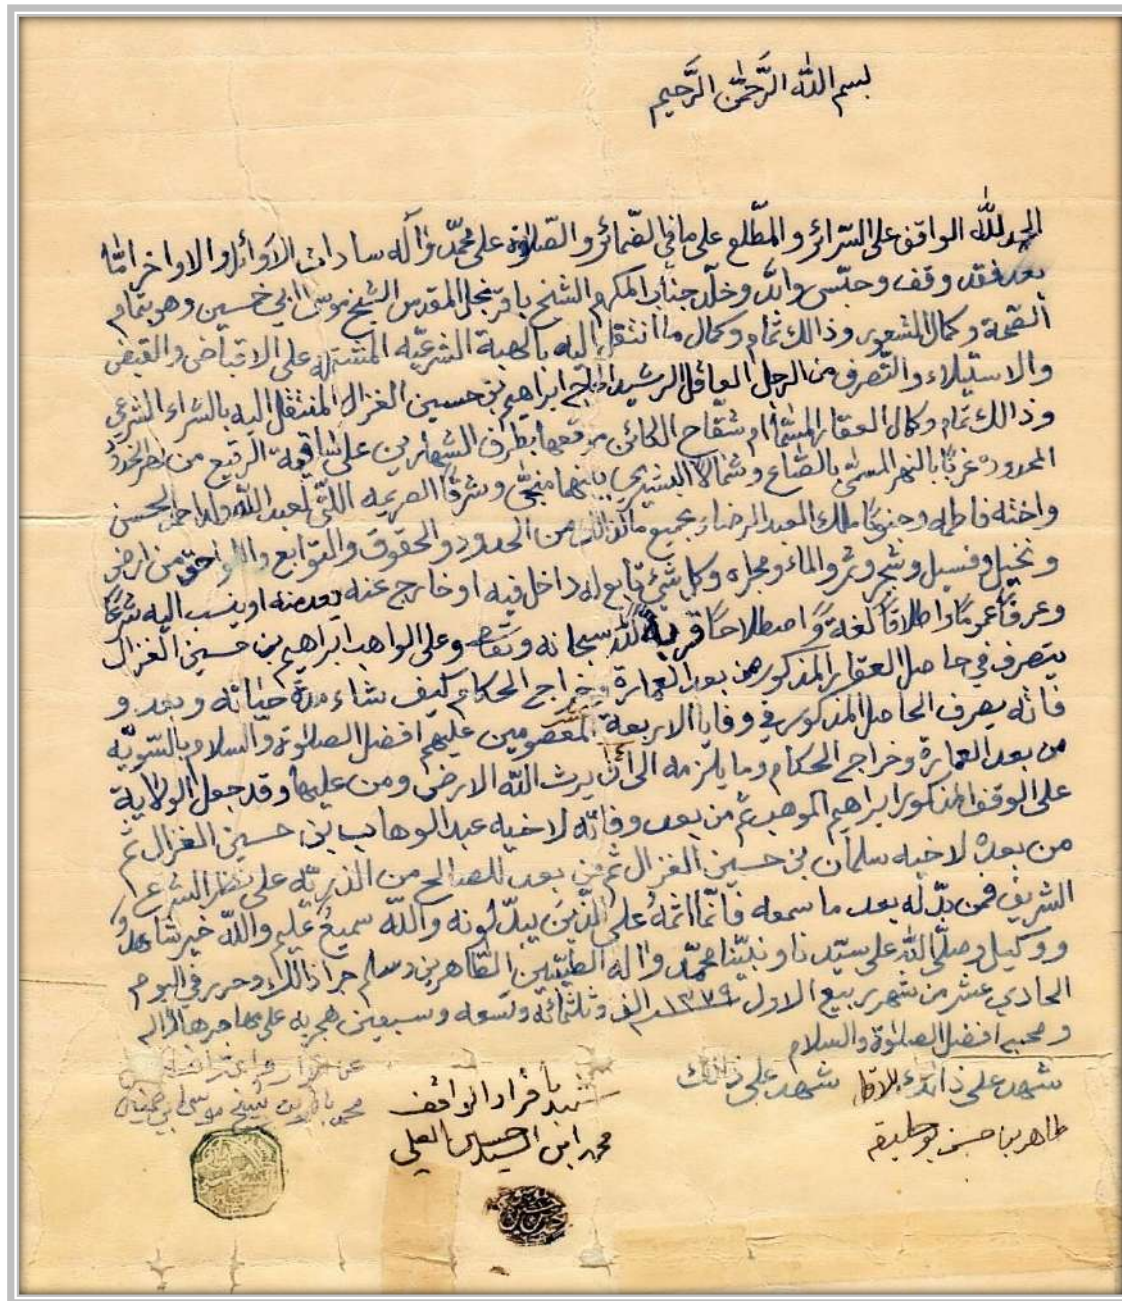 بسم الله الرَّحمن الرَّحيم
الحمد لله الواقف على السّرائر والمطّلع على ما في الضّمائر والصّلوة على محمّد وآله سادات الأوائل والاواخر امّا
بعد فقد وقف وحبّس وابّد وخلّد جناب المكرم الشيخ باقر نجل المقدس الشيخ موسى ابي خمسين وهو بتمام
الصّحة وكمال الشعور وذالك تمام وكمال ما انتقل اليه بالهبة الشرعيّه المشتمله على الاقباض والقبض
والاستيلاء والتّصرف من الرجل العاقل الرشيد الحاج ابراهيم بن حسين الغزال المنتقل اليه بالشراء الشرعي
وذالك تمام وكمال العقار المسمّا ام شقّاح الكائن موقعها بطرف الشهارين على ساقية الرقيع من
المحدود غربًا بالنهر المسمّى بالصّاع وشمالًا البشيري بينهما منجّى وشرقًا الصريمه اللتي لعبد الله ولد احمد الحسن
واخته فاطمه وجنوبًا ملك العبد الرضاء بجميع ما لذالك من الحدود والحقوق والتوابع واللواحق من ارض
ونخيل وفسيل وشجر وثمر والماء ومجراه وكل شيء تابع له داخل فيه او خارج عنه يعد منه او ينسب اليه شرعًا
وعرفًا عمومًا واطلاقًا لغةً واصطلاحًا قربةً لله سبحانه وتعالى وعلى الواهب ابراهيم بن حسين الغزال
يتصرف في حاصل العقار المذكور من بعد العمارة وخراج الحكام كيف شاء مدة حياته وبعد و
فاته يصرف الحاصل المذكور في وفايا الاربعة المعصومين عليهم افضل الصلوة والسلام بالسّويّه
من بعد العمارة وخراج الحكام وما يلزمه الى أن يرث الله الارض ومن عليها وقد جعل الولاية
على الوقف المذكور ابراهيم الموهب ثم من بعد وفاته لاخيه عبد الوهاب بن حسين الغزال ثم
من بعده لاخيه سلمان بن حسين الغزال ثم من بعد للصالح من الذريّه على نظر الشرع
الشريف فمن بدّله بعد ما سمعه فانّما اثمهُ على الّذينَ يبدّلونه والله سميعٌ عليم والله خير شاهدٌ
ووكيل وصلّى الله على سيّدنا ونبيّنا محمّد واله الطيّبين الطّاهرين وسلم جرا ذالك وحرر في اليوم
الحادي عشر من شهر ربيع الاول ١٣٧٩ الف وثلثمائه وتسعه وسبعين هجريه على مهاجرها واله
ومحبيه افضل الصلوة والسلام
شهد على ذالك
شهد على ذالك
طاهر بن حسن بو حليقه
شهد بأقرار الواقف
محمد ابن السيد حسين العلي
محمد باقر بن الشيخ موسى ابي خمسين